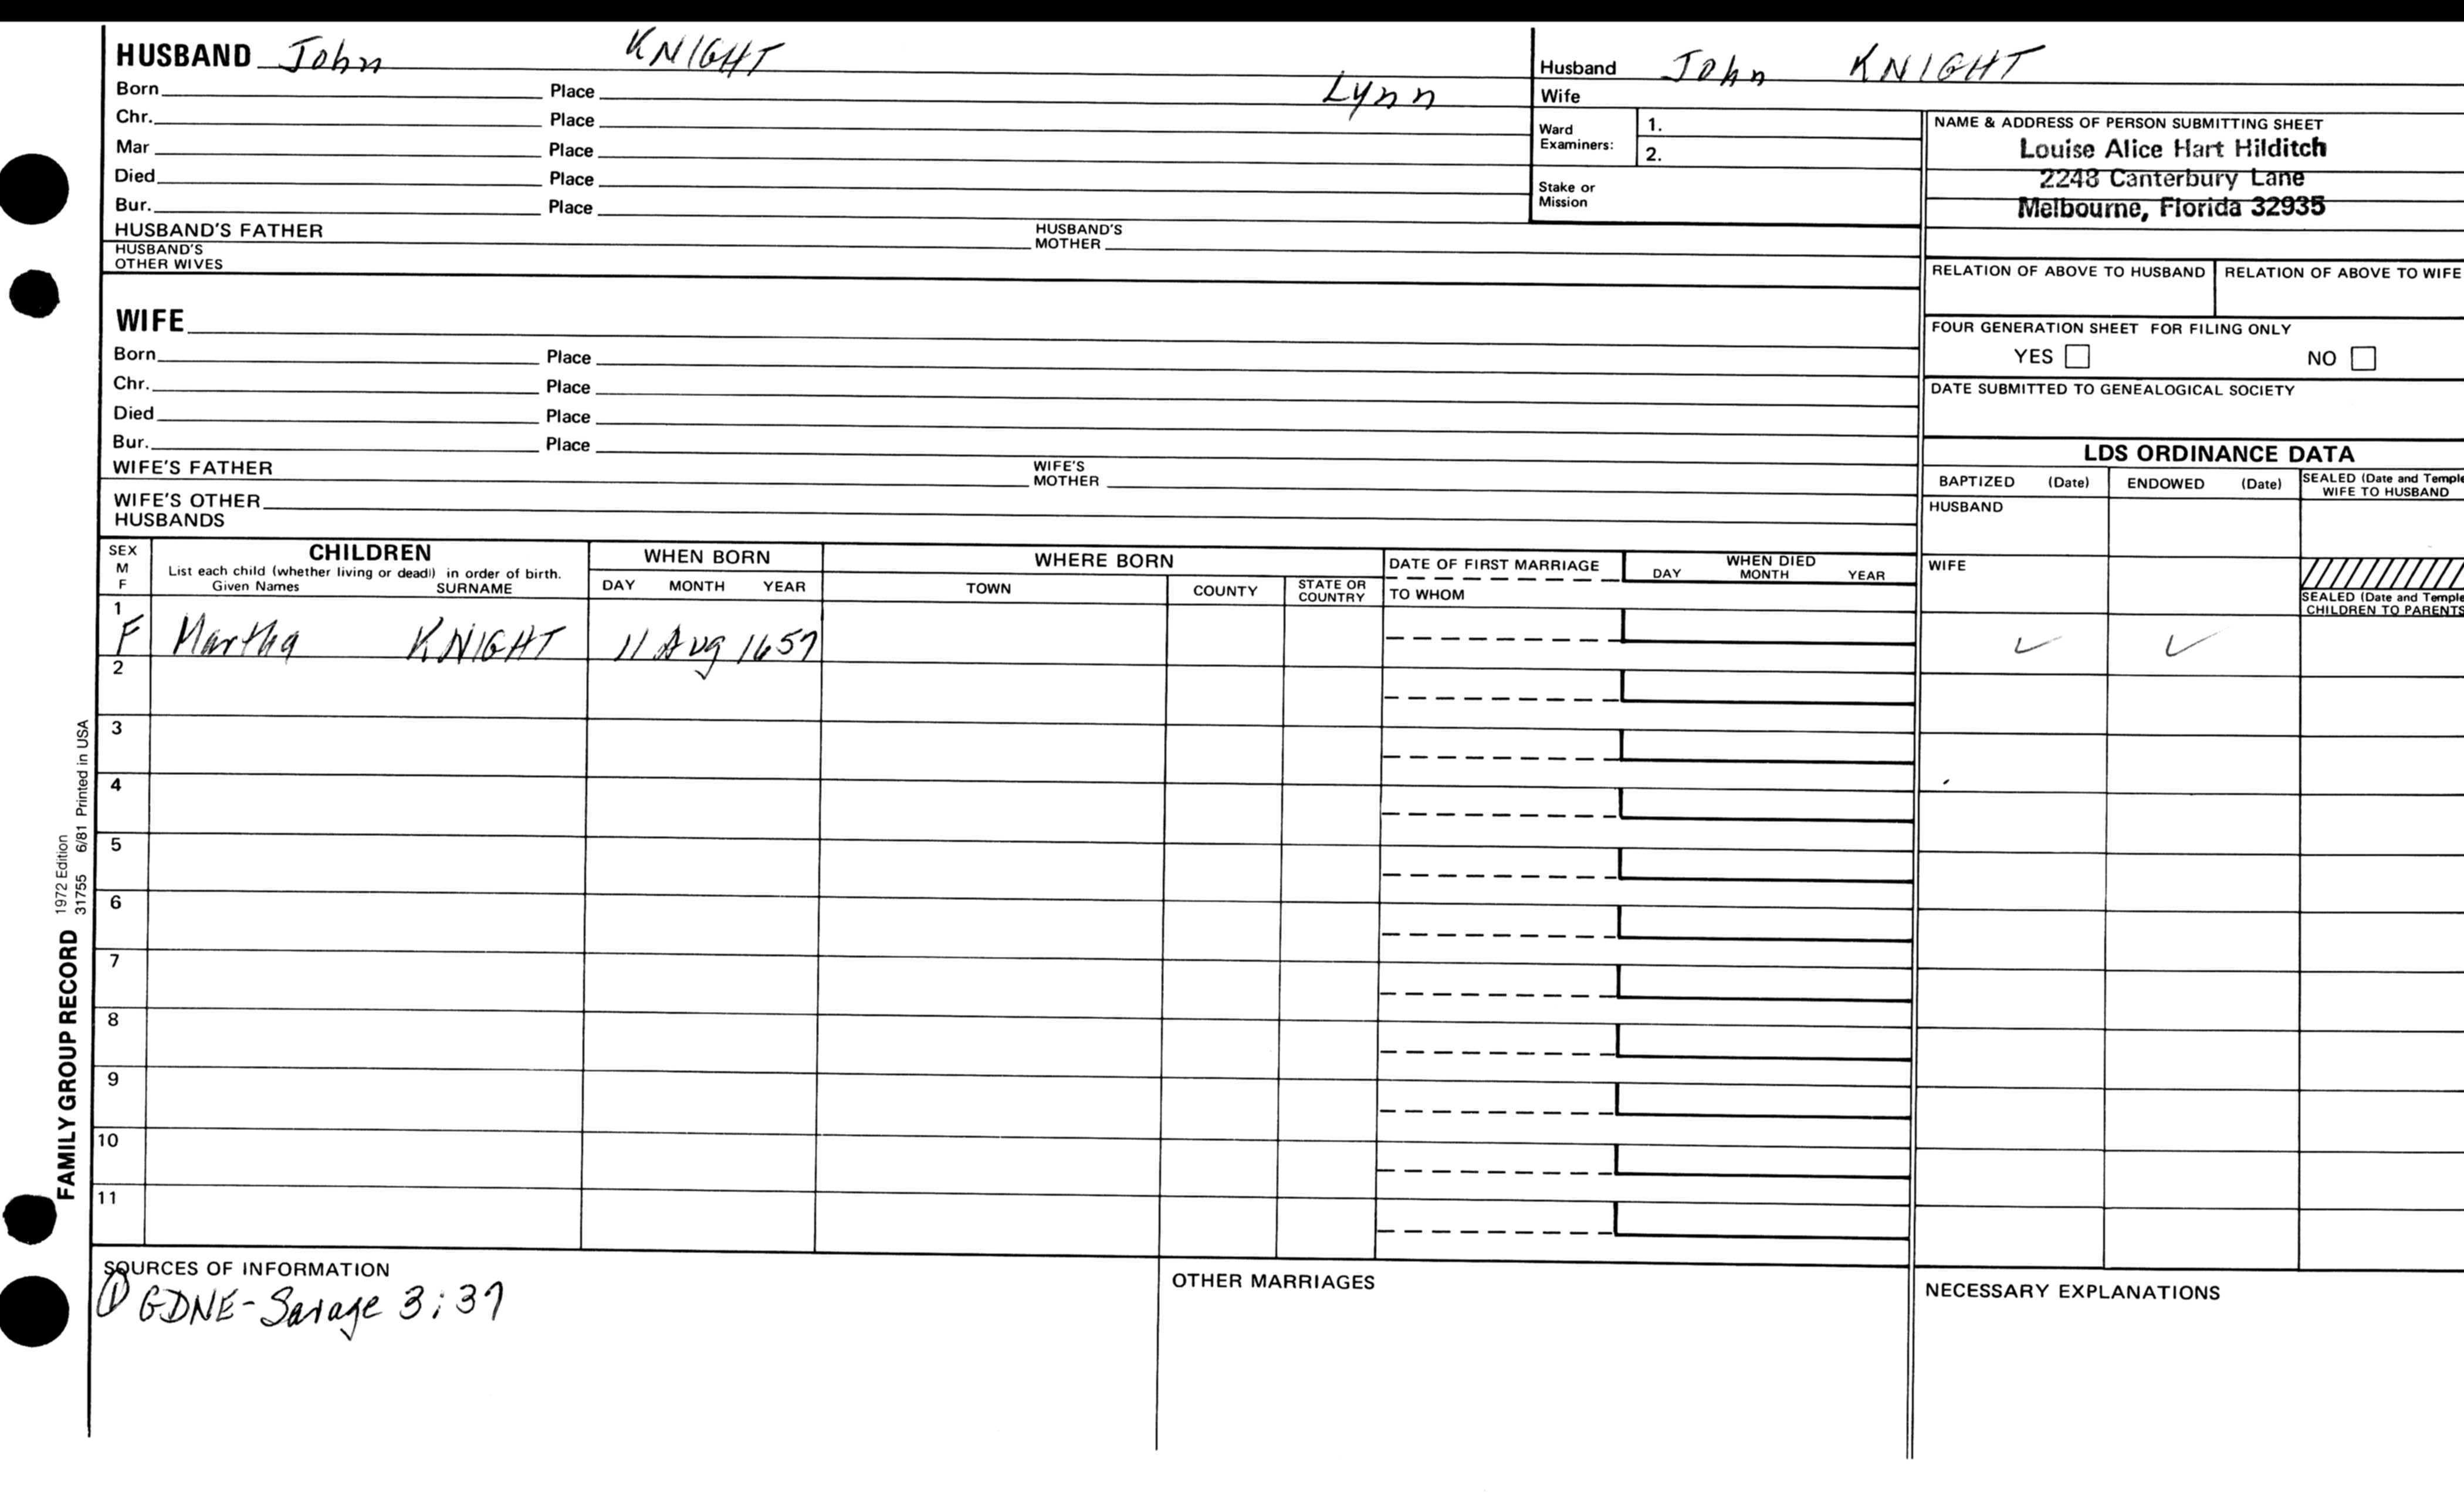 HUSBAND John KNIGHT
Born Place Lynn
Chr. Place
Mar Place
Died Place
Bur. Place
HUSBAND'S FATHER HUSBAND'S MOTHER
HUSBAND'S OTHER WIVES
Husband John KNIGHT
Wife
Ward Examiners: 1.
2.
Stake or Mission
NAME & ADDRESS OF PERSON SUBMITTING SHEET
Louise Alice Hart Hilditch
2248 Canterbury Lane
Melbourne, Florida 32935
RELATION OF ABOVE TO HUSBAND RELATION OF ABOVE TO WIFE
FOUR GENERATION SHEET FOR FILING ONLY
YES NO
DATE SUBMITTED TO GENEALOGICAL SOCIETY
WIFE
Born Place
Chr. Place
Died Place
Bur. Place
WIFE'S FATHER WIFE'S MOTHER
WIFE'S OTHER HUSBANDS
LDS ORDINANCE DATA
BAPTIZED (Date) ENDOWED (Date) SEALED (Date and Temple
WIFE TO HUSBAND
HUSBAND
WIFE
SEALED (Date and Temple
CHILDREN TO PARENTS
SEX M F
CHILDREN
List each child (whether living or dead) in order of birth.
Given Names SURNAME
WHEN BORN
DAY MONTH YEAR
WHERE BORN
TOWN COUNTY STATE OR COUNTRY
DATE OF FIRST MARRIAGE
TO WHOM
WHEN DIED
DAY MONTH YEAR
1 F Martha KNIGHT 11 Aug 1657 ✓ ✓
2
3
4
5
6
7
8
9
10
11
SOURCES OF INFORMATION
① GDNE-Savage 3:37
OTHER MARRIAGES
NECESSARY EXPLANATIONS
FAMILY GROUP RECORD
1972 Edition
31755 6/81 Printed in USA